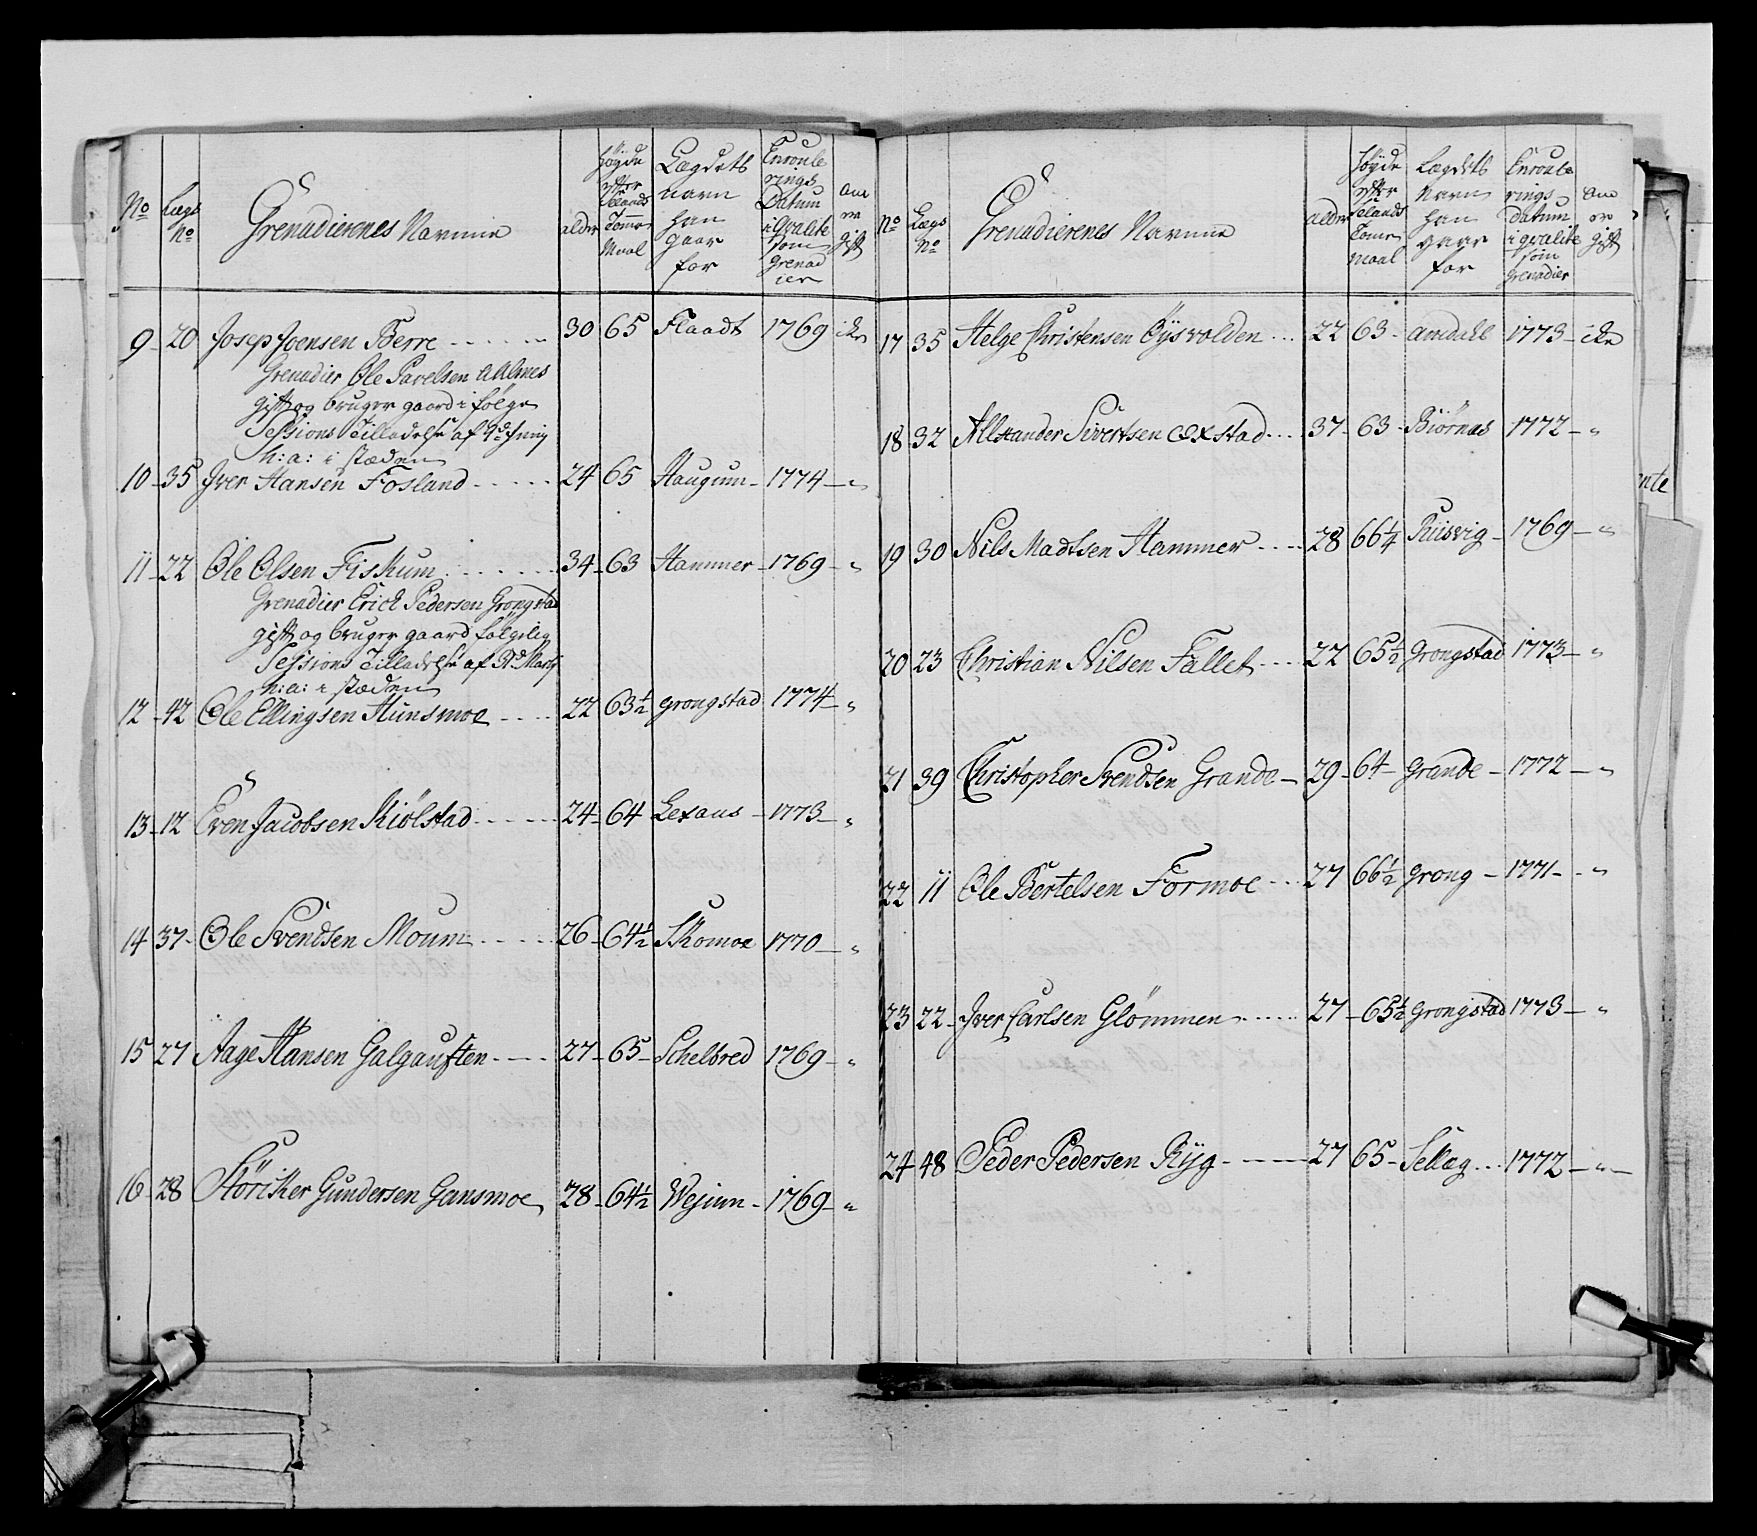 No
Lægs No
Grenadierenes Navnne
alder
höyde efter Siælands Tomme Maal
Lægdets navn han gaar for
Enroule rings Datum i qvalite som Grenad ier
om er gift
9 - 20 Josep Joensen Berre - - - - - 30 65 Flaadt 1769 ike
Grenadier Ole Pavelsen Aalmes
gift og bruger gaard i følge
Sessions Tilladelse af
n: a: i stæden
10 - 35 Jver Hansen Fosland - - - - - 24 65 Haugum - 1774 - "
11 - 22 Ole Olsen Fiskum - - - - - 34 - 63 Hammer - 1769 - "
Grenadier Erich Pedersen Grongstad
gift og bruger gaard følgelig
Sessions Tilladelse af Marty
n: a: i stæden
12 - 42 Ole Ellingsen Hunsmoe - - - - 22 63½ grongstad 1774 - "
13 - 12 Even Jacobsen Kiölstad - - - - - 24 - 64 Lexaus - 1773 - "
14 37 - Ole Svendsen Moum - - - - - 26 - 64½ Skomoe 1770 - "
15 27 Aage Hansen Galgauften - - - - 27 - 65 - Schelbred 1769 - "
16 - 28 Störiker Gundersen Gansmoe 28 - 64½ Wejum - 1769 - "
No
Lægs No
Grenadierenes Navnne
alder
Höyde efter Siælands Tomme maal
Lægdets Navn han gaar for
Enroule rings datum i qvalite som Grenadier
om er gift
17 35 Helge Christensen Öysvolden - - - 22 63 - amdahl 1773 - ike
18 - 32 Allexander Sivertsen Oxstad - - - 37 - 63 - Biörnes 1772 - "
19 30 Nils Madtsen Hammer - - - - 28 66¼ Riisvig - 1769 - "
20 23 Christian Nilsen Fallet - - - - 22 65½ grongstad 1773 - "
21 39 Christopher Svendsen Grande - 29 - 64 - grande - 1772 - "
22 11 Ole Bertelsen Formoe - - - 27 66½ grong - 1771 - "
23 22 - Jver Carlsen Glömmen - - - - - 27 - 65½ grongstad 1773 - "
24 48 Peder Pedersen Ryg - - - - - 27 65 - Sellæg - - - 1772 - " -
ente